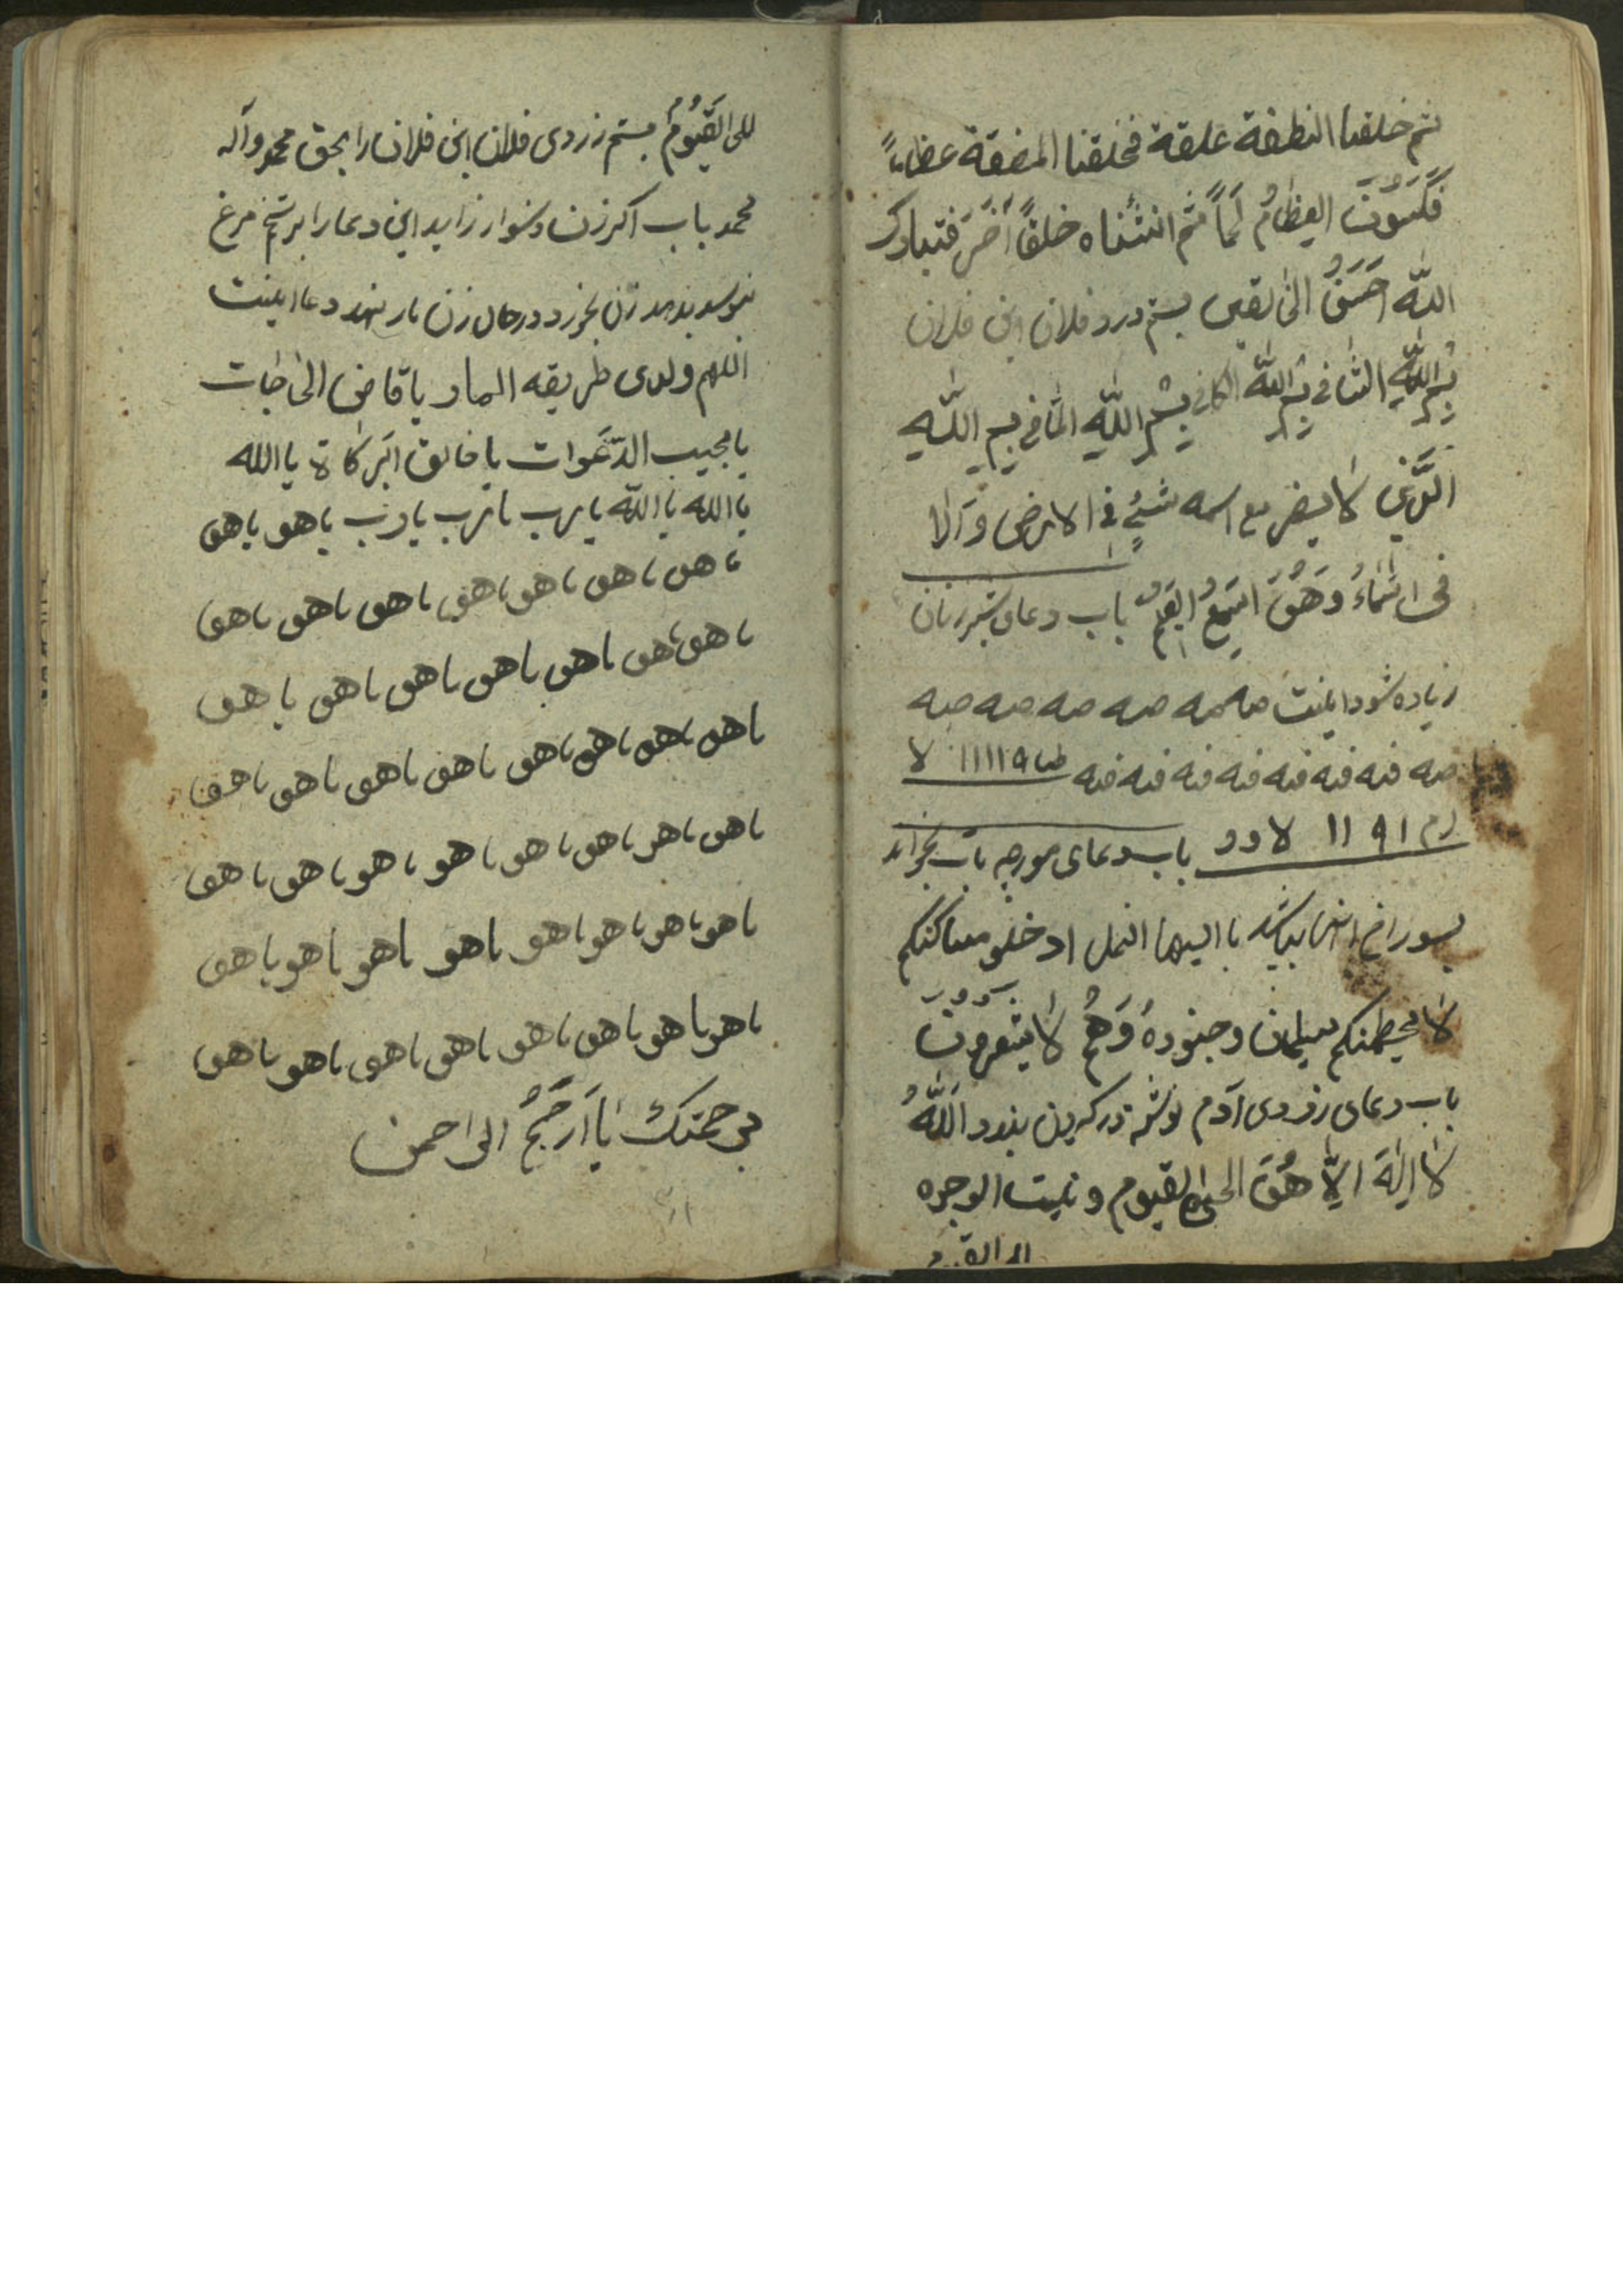 ثم خلقنا النطفة علقة فخلقنا المضقة عظاماً
فَكَسَوُنَ العِظامُ لَحماً ثم انشئناه خلقاً آخَرَ فتبارک
اللّه اَحسَنُ الخالقین بستم درد فلان ابن فلان
بِسْمِ اللّهِ الشافی بِسْمِ اللّهِ الکافی بِسْمِ اللّهِ المافی بِسم اللّهِ
الَّذی لا یضر مع اسمه شئٍ فی الارض وَالا
فی السَّماءُ وَهُوَ السَمیعُ العَلیم باب دعای شیر زنان
زیاده شود اینست صه صه صه صه صه صه
صه فیه فیه فیه فیه فیه فیه فیه ۱۱۱۱۹ لا
۱۱ ۹۱ لا دد باب دعای مورچه بات بخواند
بسوراخ باالیها النمل ادخلو مساکنکم
لا یحطمنکم سیلمان وجنوده وَهُم لا یَشعرُونَ
باب دعای زردی آدم نوشته در کردن بندد اَللّهُ
لا اِلهَ اِلّا هُوَ الحی القیوم وعنیت الوجوه
للحی القیوم
للحی القَیُّومُ بستم زردی فلان ابن فلان را بحق محمد وآله
محمد باب اکر زن دشوار زاید این دعا را بر تخم مرغ
نبوسد بدهد زن بخورد در حال زن بار نهد دعا اینست
اللهم ولدی طریقه المار یا قاضی الحاجات
یا مجیب الدّعَوات یا خالق البَرکاة یا الله
یا الله یا اللّه یا رب یا رب یا رب یا هو یا هو
یا هو یا هو یا هو یا هو یا هو یا هو یا هو
یا هو یا هو یا هو یا هو یا هو یا هو یا هو
یا هو یا هو یا هو یا هو یا هو یا هو یا هو یا هو
یا هو یا هو یا هو یا هو یا هو یا هو یا هو یا هو
یا هو یا هو یا هو یا هو یا هو یا هو یا هو یا هو
یا هو یا هو یا هو یا هو یا هو یا هو یا هو یا هو
برحمتکَ یا اَرحَمُ الراحمن